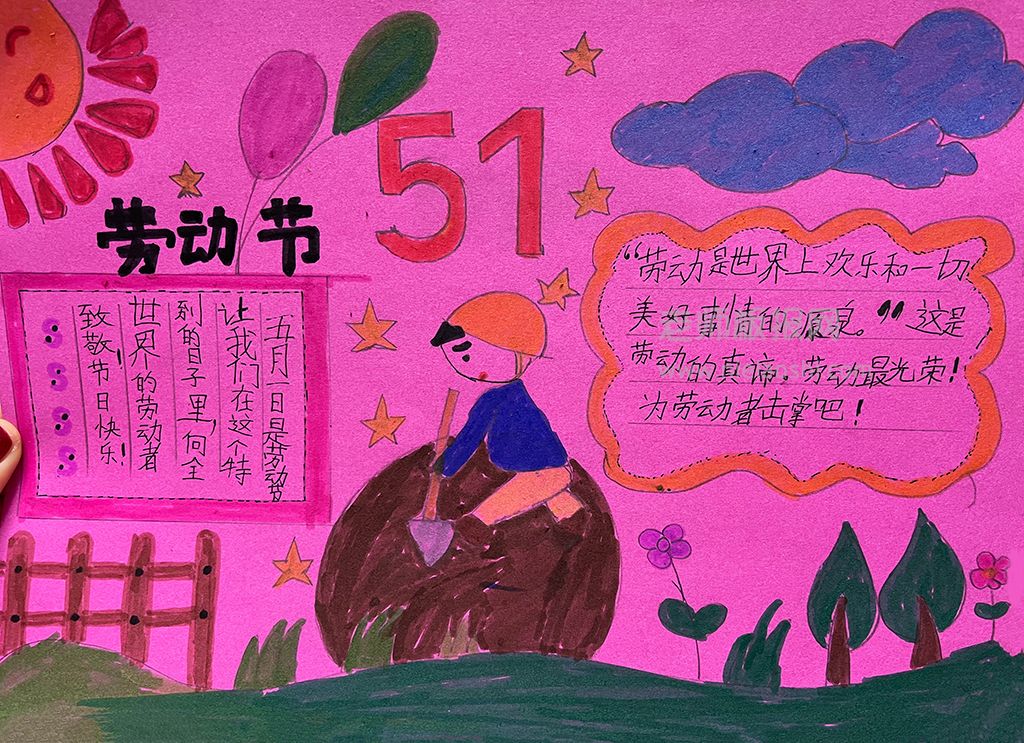 51
劳动节
五月一日是劳动节
让我们在这个特
别的日子里,向全
世界的劳动者
致敬!节日快乐!
“劳动是世界上欢乐和一切
美好事情的源泉。”这是
劳动的真谛。劳动最光荣!
为劳动者击掌吧!